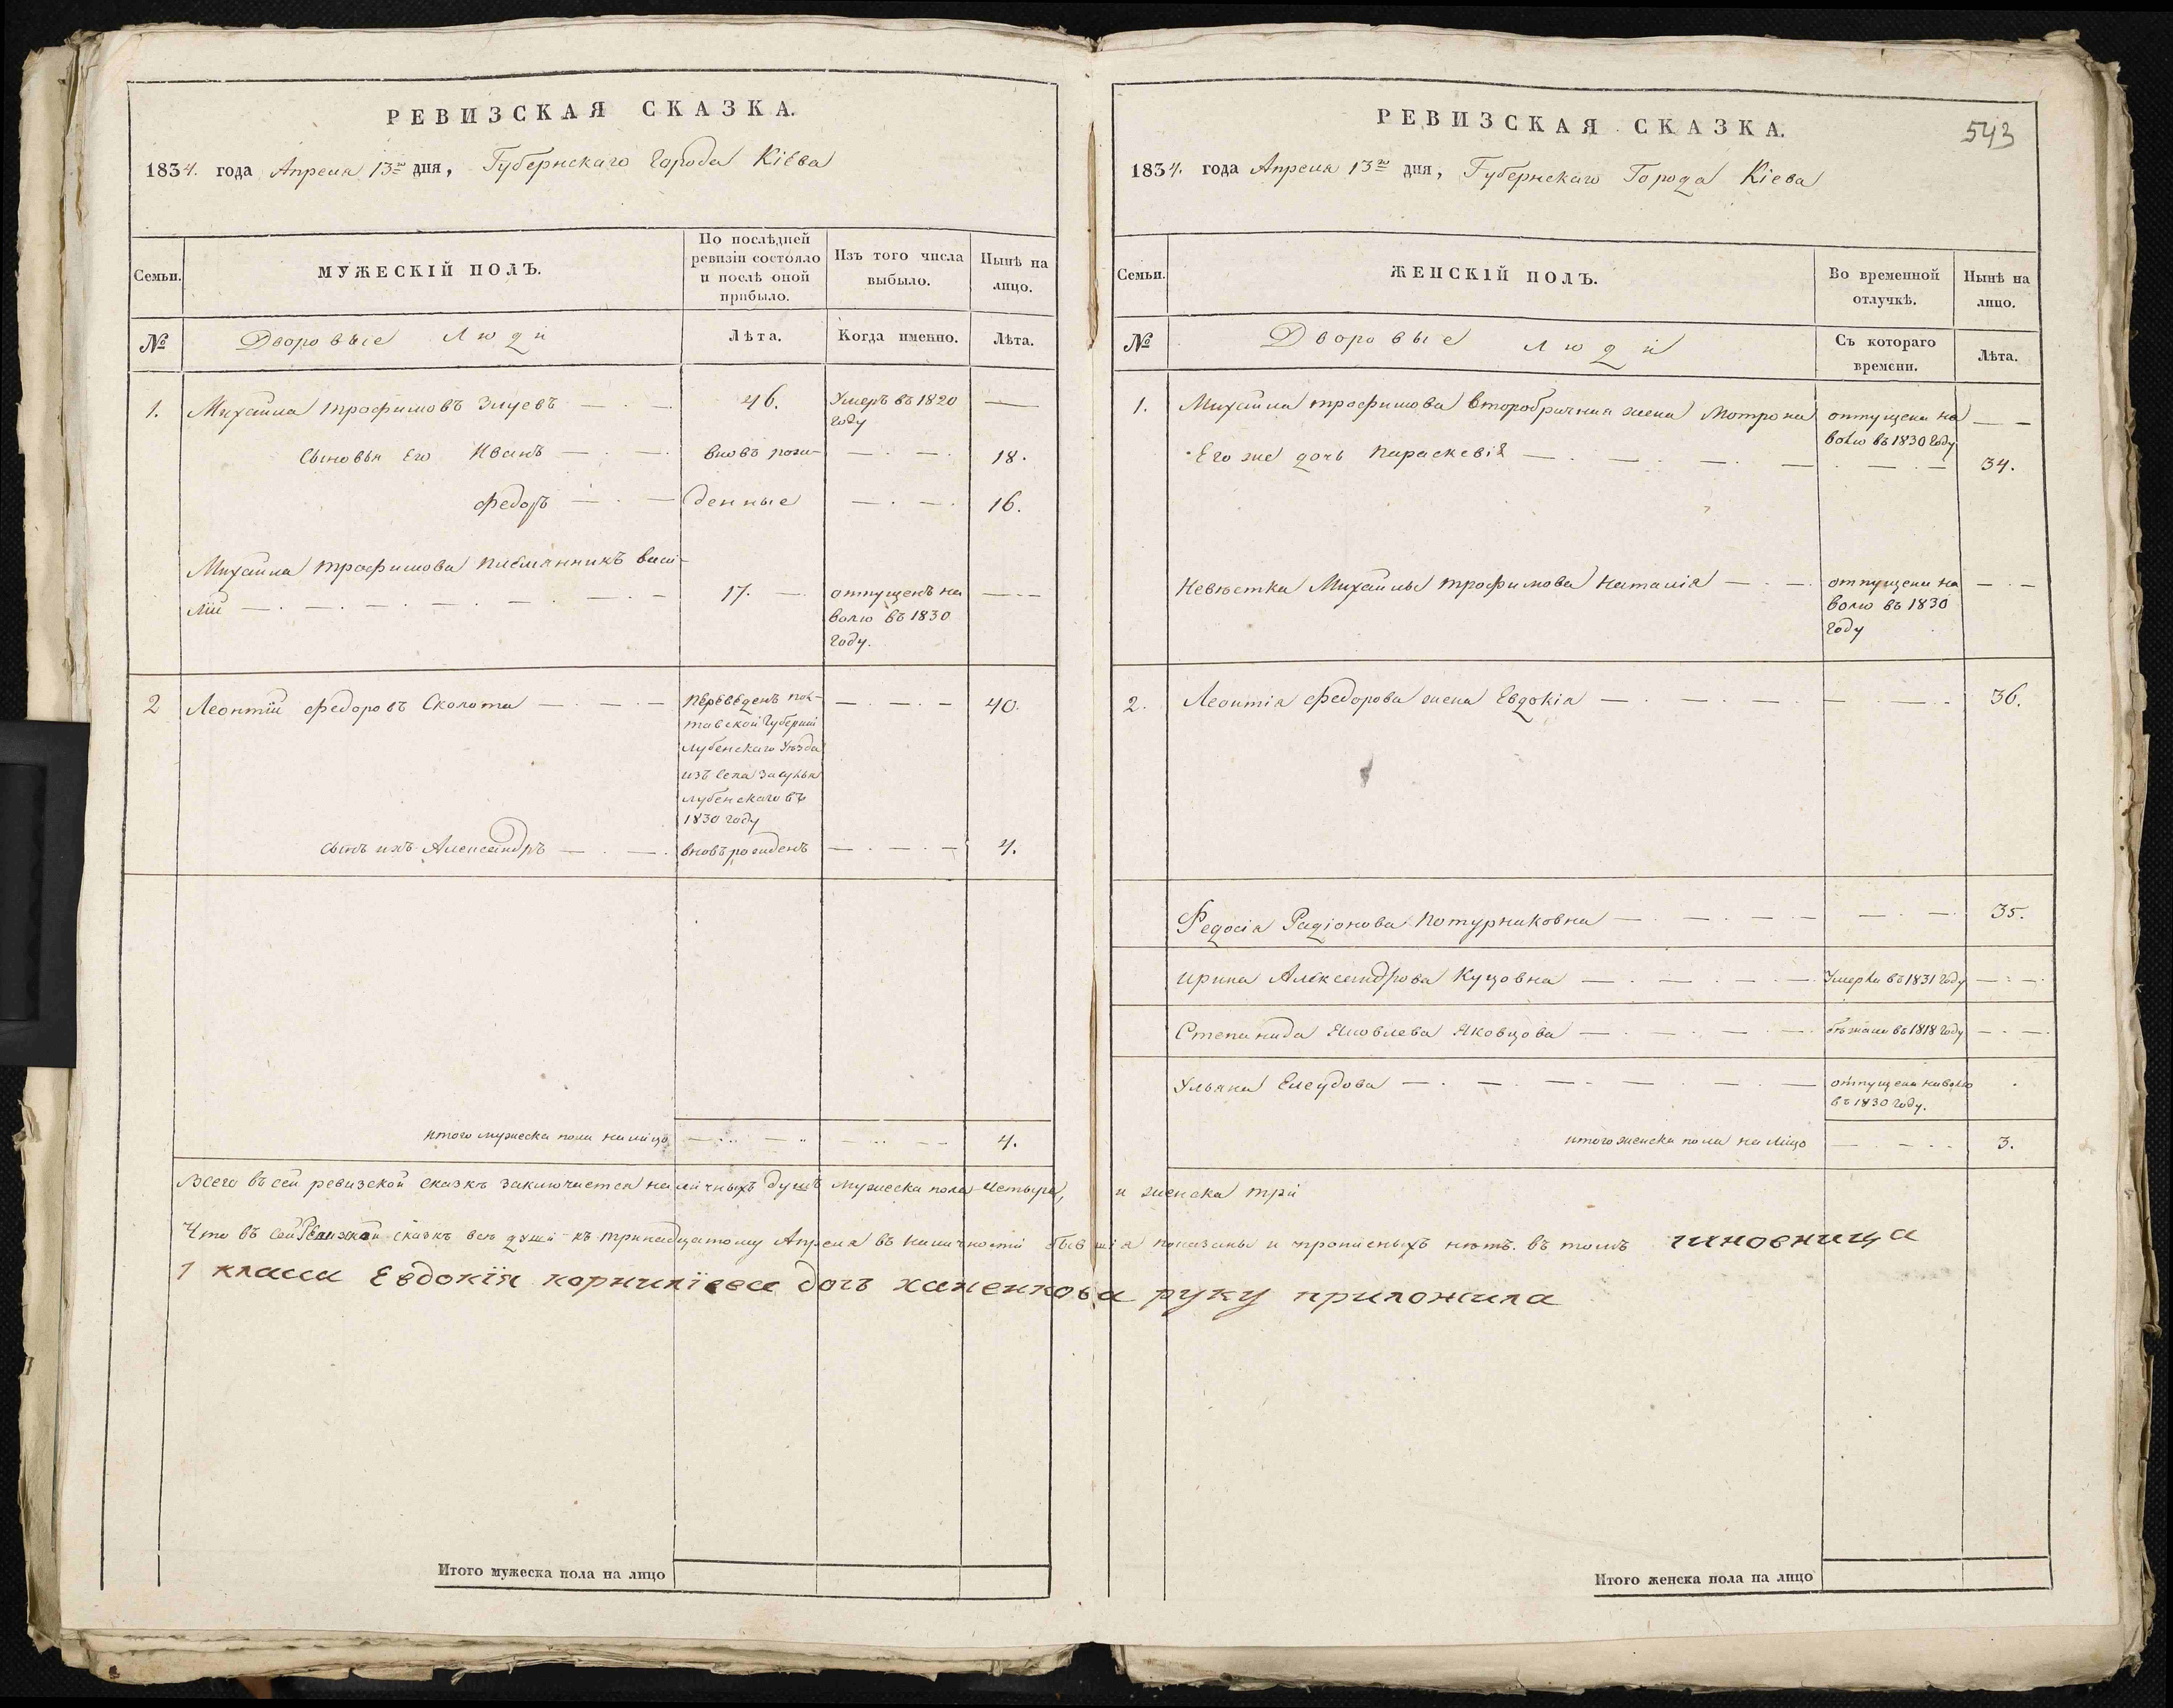 РЕВИЗСКАЯ СКАЗКА.
1834. года Апреля 13го дня, Губернскаго Города Кіева
Семьи.
МУЖЕСКІЙ ПОЛЪ.
По послѣдней
ревизіи состояло
и послѣ оной
прибыло.
Изъ того числа
выбыло.
Нынѣ на
лицо.
№
Дворовые Люди
Лѣта.
Когда именно.
Лѣта.
1. Михайла трофимовъ Зуевъ 46. Умеръ въ 1820
году
Сыновья Его Иванъ вновъ рож- 18.
Федоръ денные 16.
Михайла трофимова племянникъ васи-
лій 17. отпущенъ на
волю въ 1830
году.
2 Леонтій Федоровъ Сколота Переведенъ пол- 40.
тавской Губерніи
Лубенскаго Уѣзда
изъ села Засулья
лубенскаго въ
1830 году
сынъ ихъ Александръ вновъ рожденъ 4.
итого мужеска пола на лицо 4.
РЕВИЗСКАЯ СКАЗКА.
543
1834. года Апреля 13го дня, Губернскаго Города Кіева
Семьи.
ЖЕНСКІЙ ПОЛЪ.
Во временной
отлучкѣ.
Нынѣ на
лицо.
№
Дворовые люди
Съ котораго
времени.
Лѣта.
1. Михайла трофимова второбрачная жена Мотрона отпущена на
волю въ 1830 году
Его же дочь Параскевія 34.
Невѣстка Михайлы трофимова Наталія отпущена на
волю въ 1830
году
2. Леонтія Федорова жена Евдокія 36.
Федосія Радіонова Потурнаковна 35.
Ирина Александрова Куцовна Умерла въ 1831 году
Степанида Яковлева Яковцова бѣжала въ 1818 году
Ульяна Елеудова отпущена на волю
въ 1830 году.
итого женска пола на лицо 3.
Всего въ сей ревизской сказкѣ заключается наличныхъ душъ мужеска пола четыре, и женска три
Что въ сей Ревизской сказкѣ всѣ души къ тринадцатому Апреля въ наличности бывшія показаны и прописныхъ нѣтъ. въ томъ чиновница
7 класса Евдокія корниліева дочъ ханенкова руку приложила
Итого мужеска пола на лицо
Итого женска пола на лицо